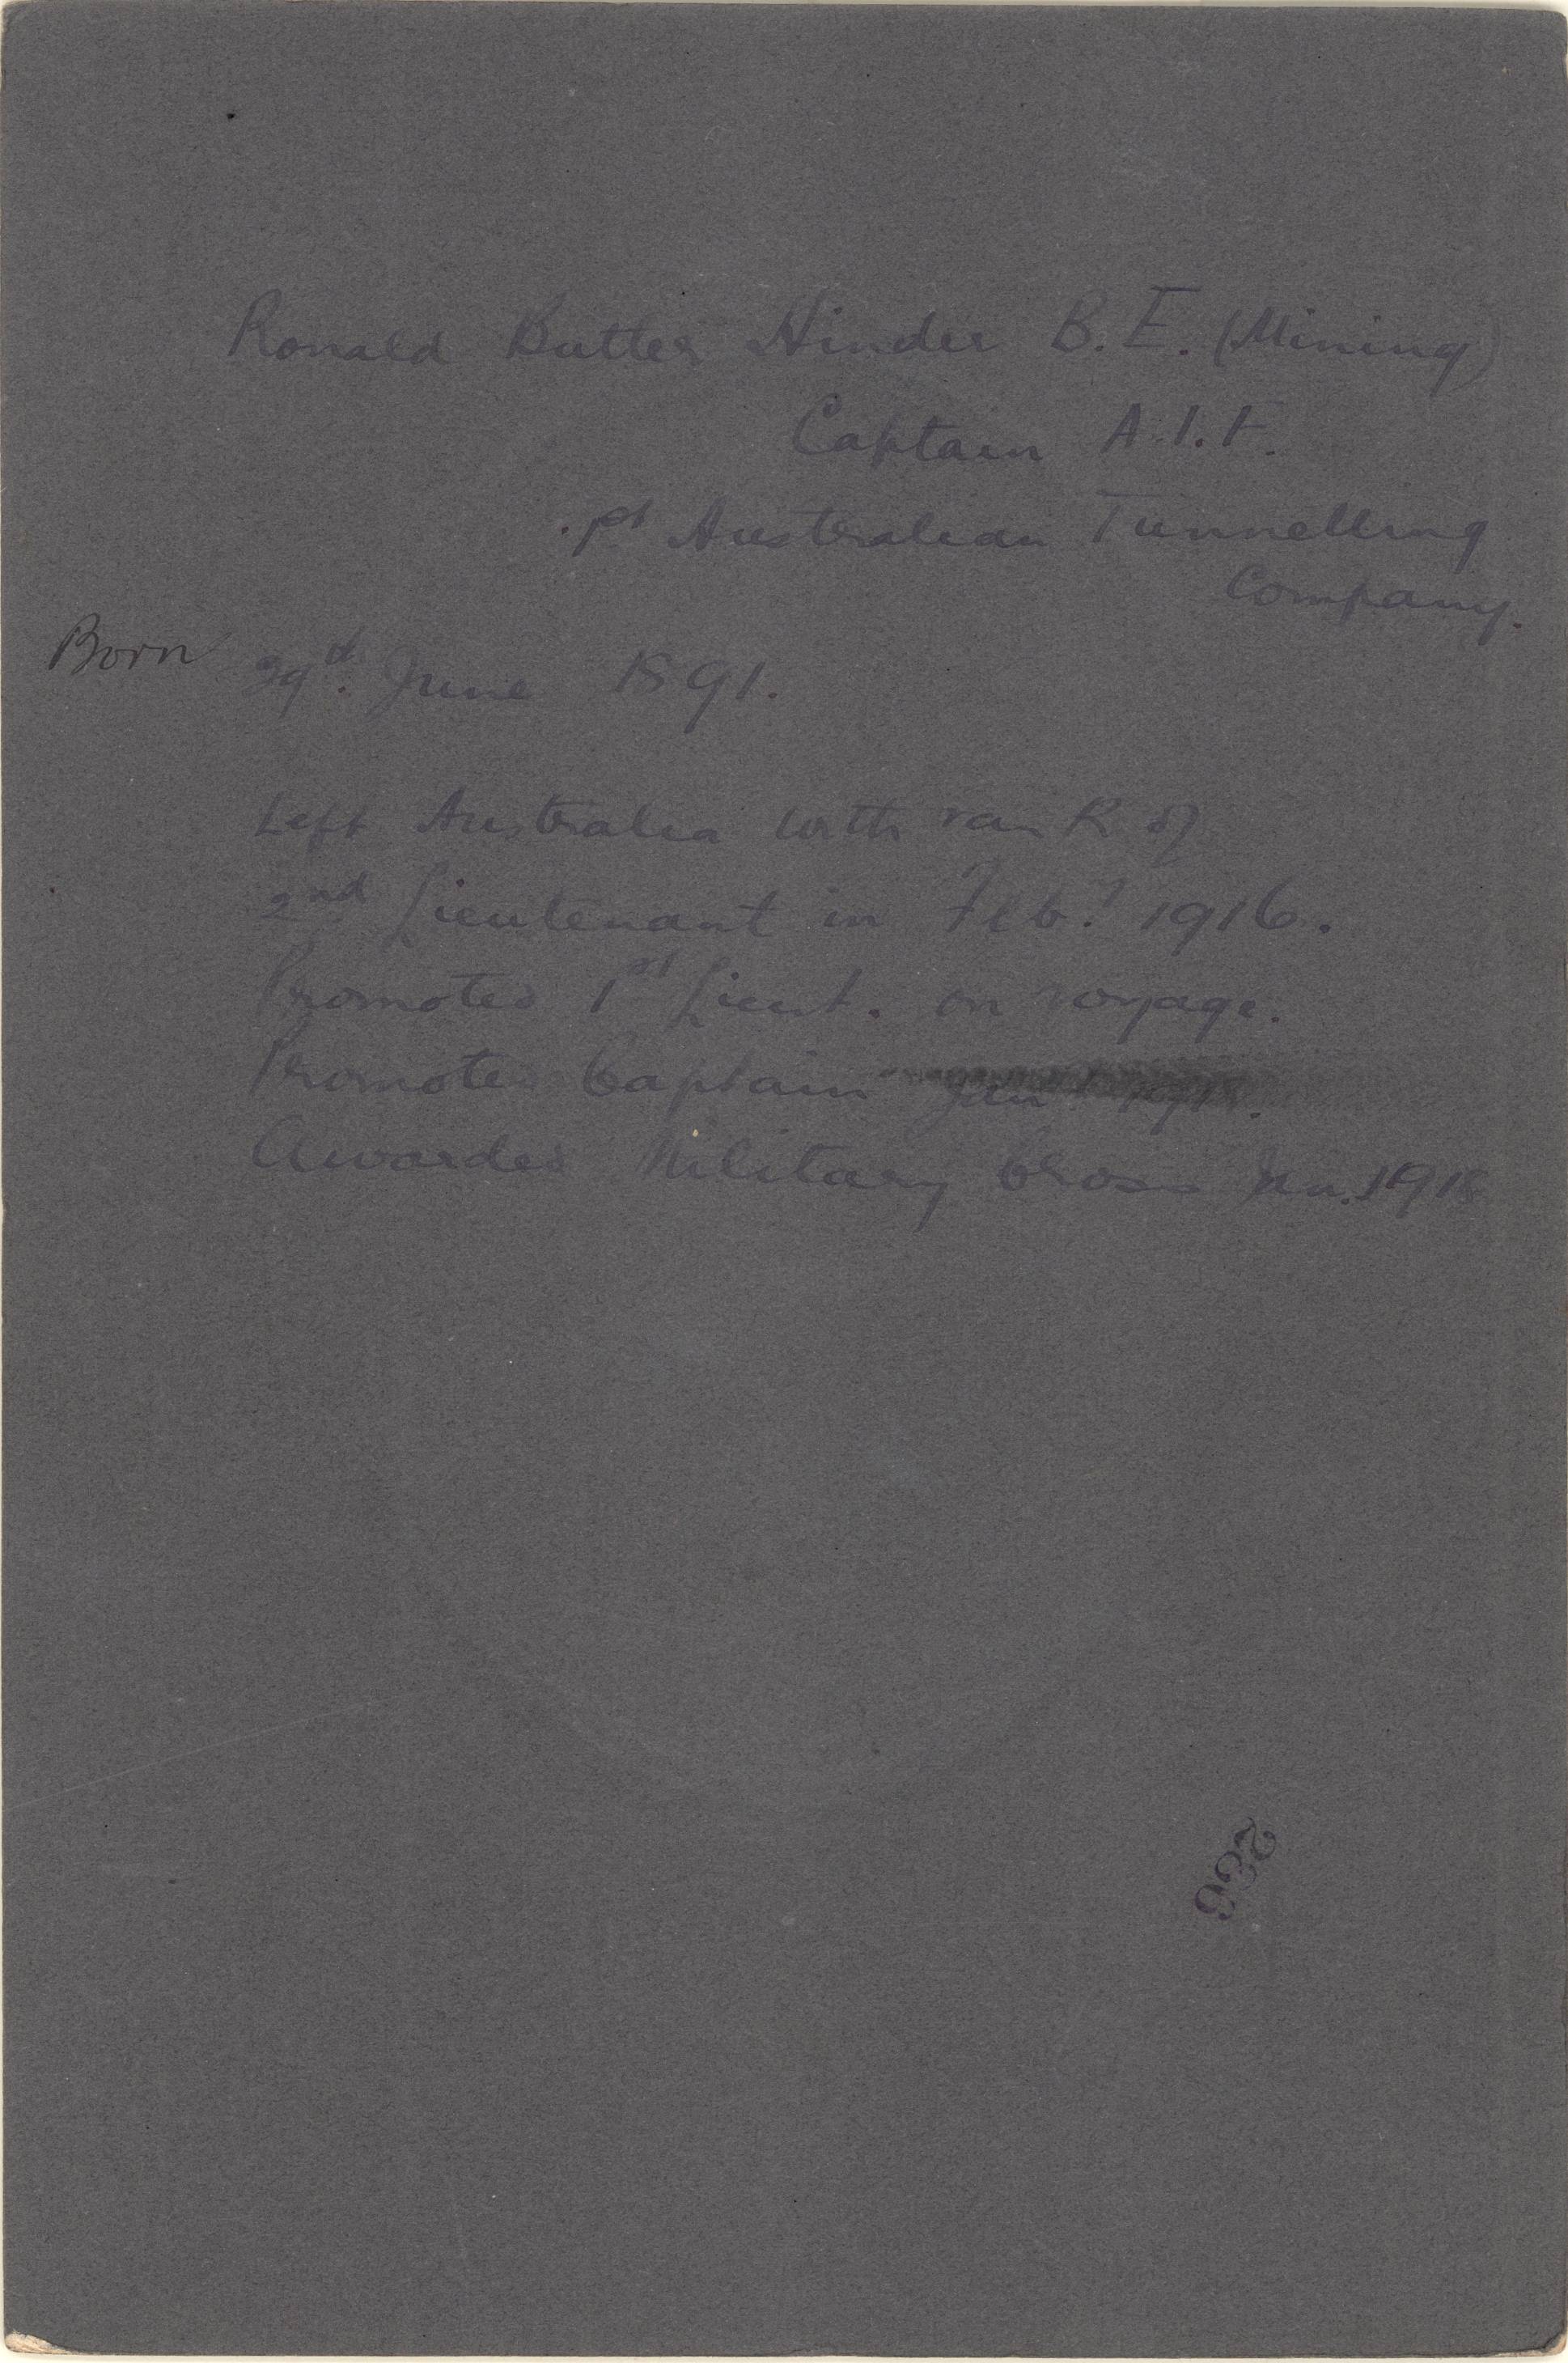 Ronald Butler Hinder B.E. (Mining)
Captain A.I.F.
1st Australian Tunnelling
Company.
Born 29th. June 1891.
Left Australia with rank of
2nd Lieutenant in Feby. 1916.
Promoted 1st Lieut. on voyage.
Promoted Captain
Awarded Military Cross 1918
236